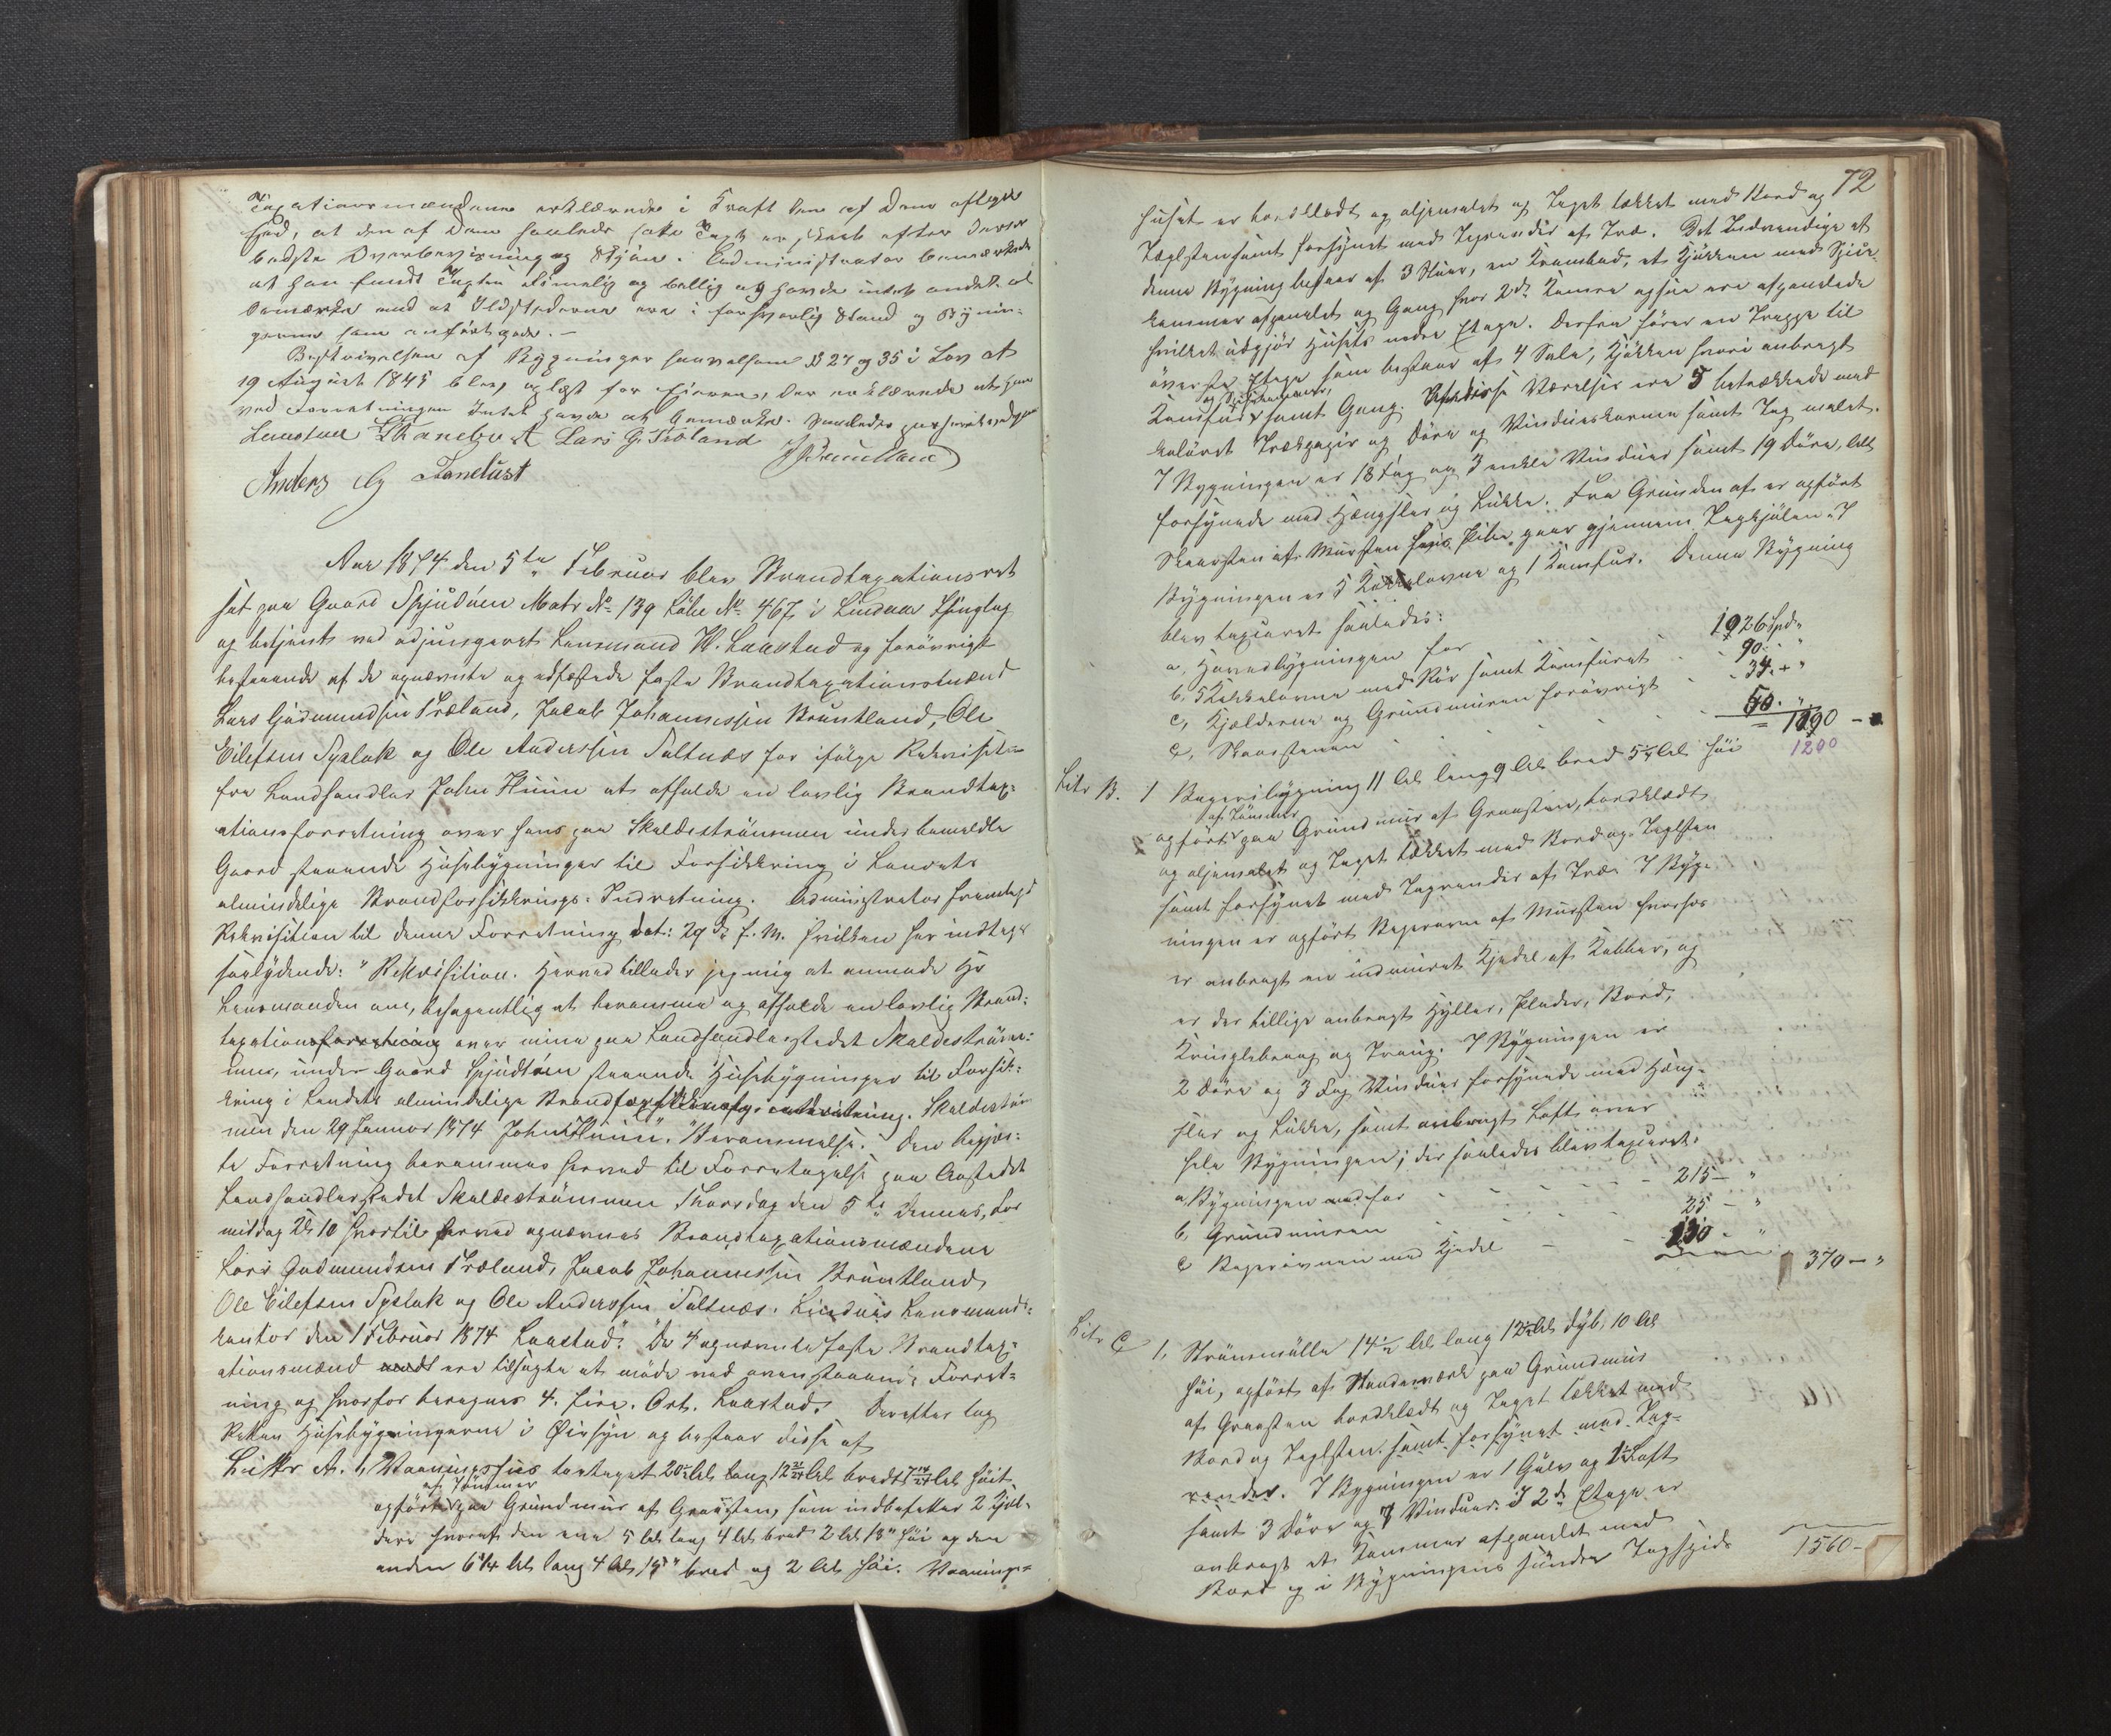 Taxationsmændene erklærede i Kraft den af Dem aflagte
Eed, at den af Dem saaledes satte Taxt er skeet efter deres
bedste Overbeviisning og Skjøn. Administrator bemærkede
at han fandt Taxten rimelig og billig og havde intet andet at
bemærke end at Ildstederne ere i forsvarlig Stand og Bygnin-
gerne som anført gode. –
Beskrivelsen af Bygninger saavelsom § 27 og 35 i Lov af
19 August 1845 blev oplæst for Eieren, der erklærede at han
ved Forretningen Intet havde at bemærke. Saaledes passeret
Lensmand Lars G. Træland
Anders
Aar 1874 den 5te Februar blev Brandtaxationsret
sat paa Gaard Spjudøen Matr No 139 Løbe No 467 i Lindaas Thinglag
og betjent ved adjungeret Lensmand W. Laastad og forøvrigt
bestaaende af de opnævnte og edfæstede faste Brandtaxationsmænd
Lars Gudmundsen Træland, Jacob Johannessen Bruntland, Ole
Eilefsen Syslak og Ole Anderssen Saltnæs for ifølge Rekvisition
fra Landhandler John Thuun at afholde en lovlig Brandtax-
ationsforretning over hans paa Skaldestrømmen under bemeldte
Gaard staaende Husebygninger til Forsikkring i Landets
almindelige Brandforsikkrings-Indretning. Administrator fremlagde
Rekvisition til denne Forretning dat: 29de f. M. hvilken her indtages
saalydende: "Rekvisition. Herved tillader jeg mig at anmode Hr
Lensmanden om, behagentlig at beramme og afholde en lovlig Brand-
taxationsforretning over mine paa Landhandlerstedet Skaldestrøm-
men, under Gaard Spjudøen staaende Husebygninger til Forsik-
kring i Landets almindelige Brandforsikkringsindretning. Skaldestrøm-
men den 29 Januar 1874 John Thuun". "Berammelse. Den begjær-
te Forretning berammes herved til Foretagelse paa Aastedet
Landhandlerstedet Skaldestrømmen Thorsdag den 5te dennes, For
middag Kl 10 hvortil herved opnævnes Brandtaxationsmændene
Lars Gudmundsen Træland, Jacob Johannessen Bruntland
Ole Eilefsen Syslak og Ole Anderssen Saltnæs. Lindaas Lensmands-
kontor den 1 Februar 1874 Laastad". "De 4 opnævnte faste Brandtax-
ationsmænd ere tilsagte at møde ved ovenstaaende Forret-
ning og hvorfor beregnes 4. fire. Ort. Laastad. Derefter tog
Retten Husebygningerne i Øiesyn og bestaar disse af
Litter A. 1, Vaaningshus toetages 20½ Al. lang 12 Al. bredt 7 Al. høit
af Tømmer
opført paa Grundmur af Graasten, som indbefatter 2 Kjæl-
dere hvoraf den ene 5 Al. lang 4 Al. bred 2 Al. 18" høi og den
anden 6¼ Al. lang 4 Al. 15" bred og 2 Al. høi. Vaanings-
72
huset er bordklædt og oljemalet og Taget tækket med Bord og
Taglsten samt forsynet med Tagrender af Træ. Det Indvendige af
denne Bygning bestaar af 3 Stuer, en Krambod, et Kjøkken med Spise-
kammer afpanelet og Gang hvor 2de Kamre ogsaa ere afpanelede
hvilket udgjør Husets nedre Etage. Derfra fører en Trappe til
øverste Etage som bestaar af 4 Sale, Kjøkken hvori anbragt
og Spisekammer,
Komfur samt Gang. Af disse Værelser ere 5 betrækkede med
kuløret Trækpapir og Døre og Vindueskarmer samt Tag malet.
I Bygningen er 18 Fag og 3 enkle Vinduer samt 19 Døre, alt
forsynede med Hængsler og Lukke. Fra Grunden af er opført
Skorsten af Mursten hvis Pibe gaar gjennem Tagkjølen. I
Bygningen er 5 Kakkelovne og 1 Komfur. Denne Bygning
blev taxeret saaledes:
a, Hovedbygningen for 1026 Spd.
b, 5 Kakkelovne med Rør samt Komfuret 90 "
c, Kjælderne og Grundmuren forøvrigt 34 "
d, Skorstenen 50 "
= 1200 –
1200
Litr B. 1 Bageribygning 11 Al. lang 9 Al. bred 5¼ Al. høi
af Tømmer
opført paa Grundmur af Graasten, bordklædt
og oljemalet og Taget tækket med Bord og Taglsten
samt forsynet med Tagrender af Træ. I Byg-
ningen er opført Bagerovn af Mursten hvorhos
er anbragt en indmuret Kjedel af Kobber, og
er der tillige anbragt Hyller, Plader, Bord,
Kringlebrang og Traug. I Bygningen er
2 Døre og 3 Fag Vinduer forsynede med Hæng-
sler og Lukke, samt anbragt Loft over
hele Bygningen; der saaledes blev taxeret.
a, Bygningen for 215 – "
b, Grundmuren 25 – "
c Bagerovnen med Kjedel 130 – "
370 – "
Litr C 1, Strømmølle 14½ Al. lang 12 Al. dyb, 10 Al.
høi, opført af Standerværk paa Grundmur
af Graasten bordklædt og Taget tækket med
Bord og Taglsten samt forsynet med Tag-
render. I Bygningen er 1 Gulv og 1 Loft
samt 3 Døre og 7 Vinduer. I 2de Etage er
anbragt et Kammer afpanelet med
Bord og i Bygningens søndre Tagspids
1560 –